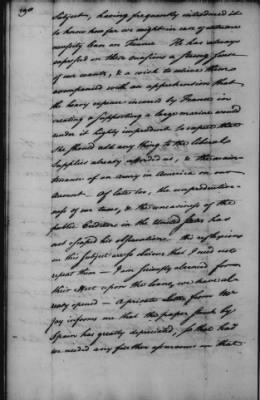 190
subject, having frequently introduced it
to know how far we might in case of extreme
necessity lean on France. He has always
expressed on these occasions a strong sense
of our wants, & a wish to relieve them,
accompanied with an apprehension that
the heavy expence incured by France in
creating & supporting a large marine would
render it highly imprudent to expect that
she should add any thing to the liberal
supplies already afforded us, & the main-
tenance of an army in America on our
account. Of late too, the unproductive-
ness of our taxes, & the uneasiness of the
public Creditors in the United States has
not escaped his observation. the reflections
on this subject are so obvious that I need not
repeat them — I am seriously alarmed from
this Hint upon the loan, we have al-
ready opened — A private Letter from Mr
Jay informs me that the paper funds by
Spain has greatly depreciated, so that had
we needed any further assurances on that